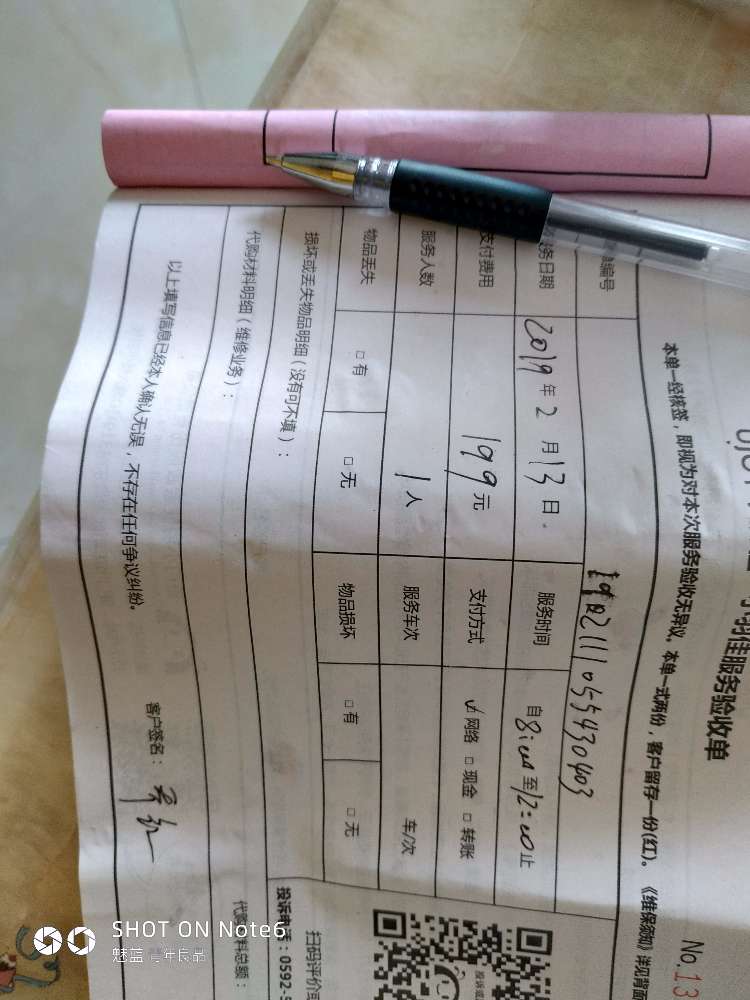 小羽佳服务验收单
No.13
本单一经核签，即视为对本次服务验收无异议。本单一式两份，客户留存一份(红)。《维保须知》详见背面
编号 1902111055430403
务日期 2019年2月13日. 服务时间 自8:00至12:00止
支付费用 199元 支付方式 ☑网络 □现金 □转账
服务人数 1人 服务车次 车/次
物品丢失 □有 □无 物品损坏 □有 □无
损坏或丢失物品明细（没有可不填）：
扫码评价或
投诉电话：0592-5
代购材料明细（维修业务）：
代购材料总额：
以上填写信息已经本人确认无误，不存在任何争议纠纷。
客户签名：
SHOT ON Note6
魅蓝 青年良品